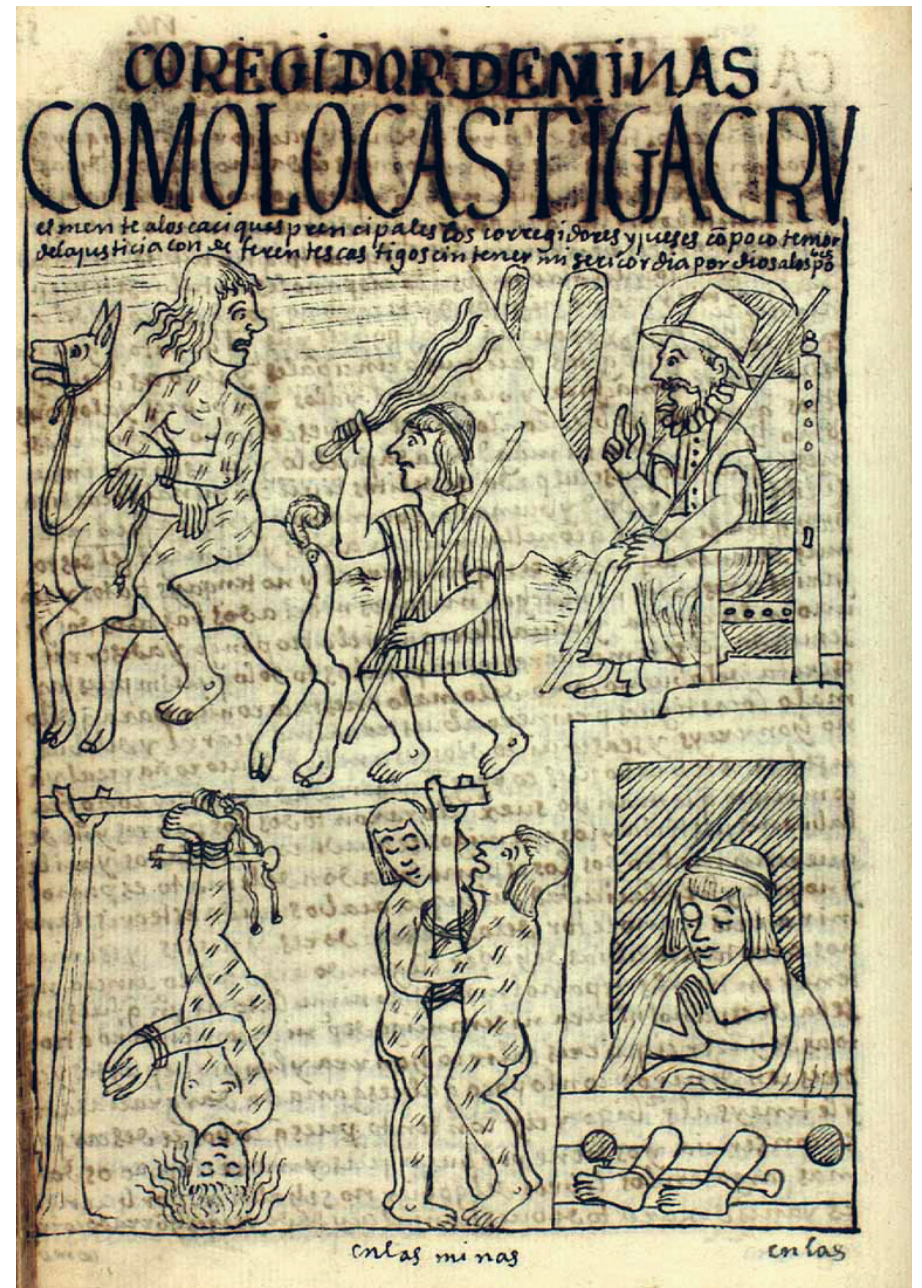 COREGIDOR DE MINAS
COMO LO CASTIGA CRV
el mente a los caciques prencipales los corregidores y jueses cō poco temor
de la justicia con deferentes castigos cin tener misericordia por dios a los pobres
en las minas
en las